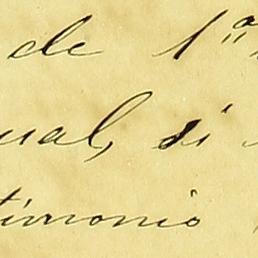 de 1ª
ual, si
timonio